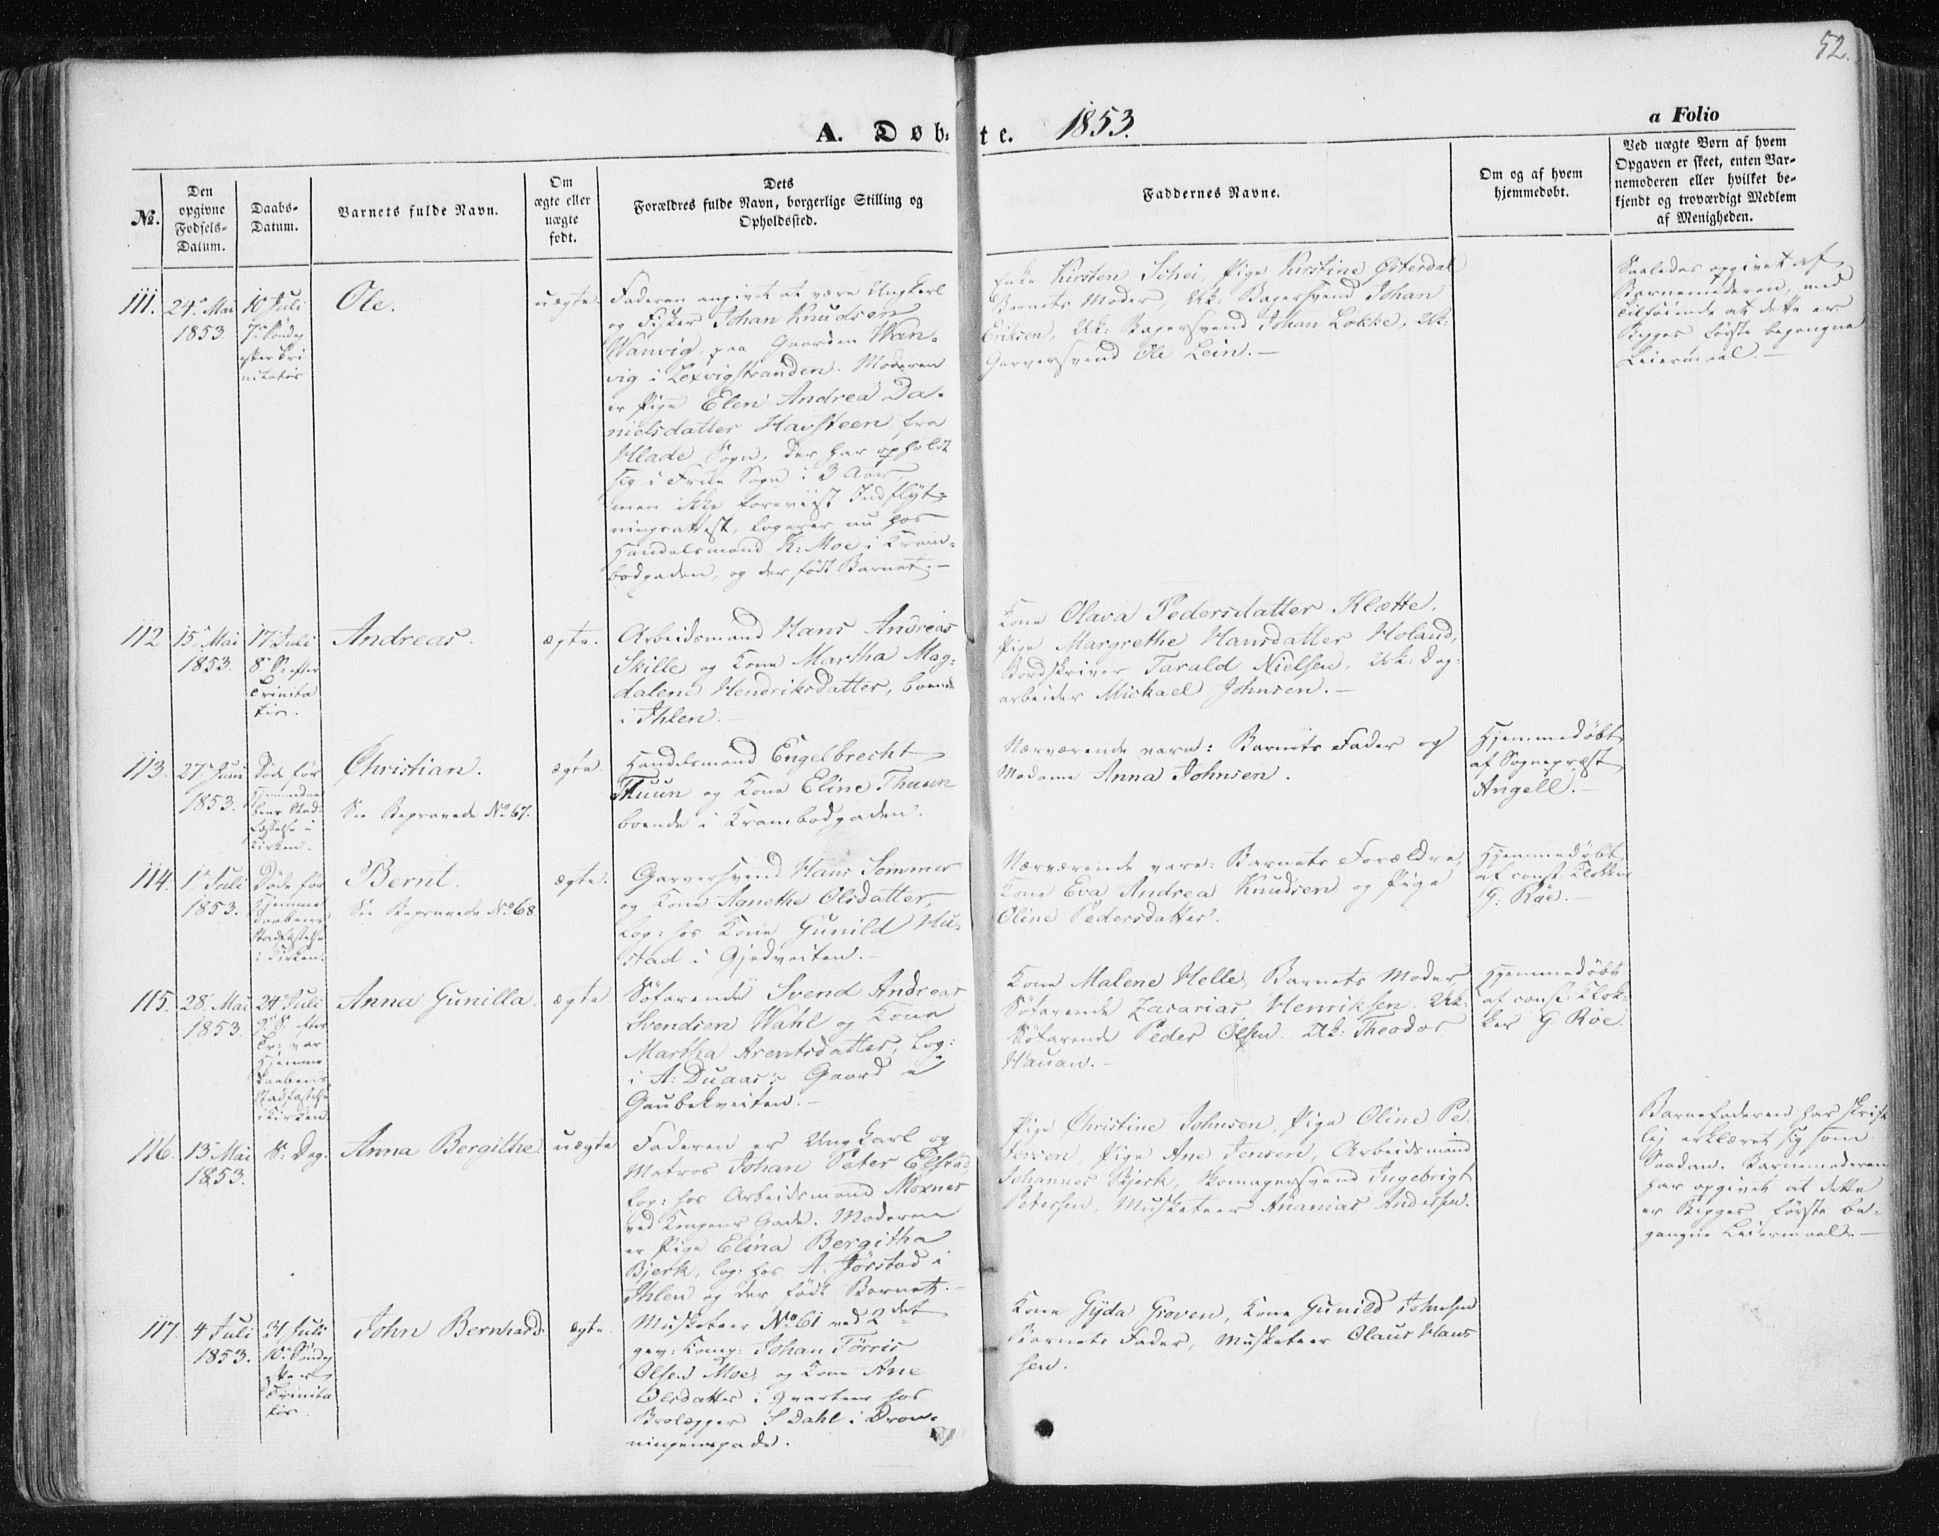 52.
A. Døbte. 1853.
a Folio
№.
Den opgivne Fødsels-Datum.
Daabs-Datum.
Barnets fulde Navn.
Om ægte eller uægte født.
Dets Forældres fulde Navn, borgerlige Stilling og Opholdssted.
Faddernes Navne.
Om og af hvem hjemmedøbt.
Ved uægte Børn af hvem Opgaven er skeet, enten Barnemoderen eller hvilket bekjendt og troværdigt Medlem af Menigheden.
111.
24de Mai
1853
10 Juli
7de Søndag
efter Tri
nitatis
Ole.
uægte.
Faderen angivet at være Ungkarl
og Fisker Johan Knudsen
Wanvig, paa Gaarden Wan-
vig i Lexvigstranden. Moderen
er Pige Elen Andrea Da-
nielsdatter Havsteen, fra
Hlade Sogn, der har opholdt
sig i Frue Sogn i 3 Aar,
men ikke foreviist Indflyt-
ningsattest, logerer nu hos
Handelsmand K: Moe i Kram-
bodgaden, og der født Barnet.—
Enke Kirsten Schei, Pige Kirstine Østerdal
Barnets Moder, Uk: Bagersvend Johan
Eriksen, Uk: Bagersvend Johan Løkke, Uk:
Garversvend Ole Lein.—
Saaledes opgivet af
Barnemoderen, med
Tilføiende at dette er
Begges første begangne
Leiermaal.—
112
15de Mai
1853.
17 Juli
8de S: efter
Trinita
tis.
Andreas.
ægte.
Arbeidsmand Hans Andreas
Skille og Kone Martha Mag-
dalene Hendriksdatter, boende
i Ihlen.—
Kone Olava Pedersdatter Klætte,
Pige Margrethe Hansdatter Holand,
Bordskriver Tarald Nielsen, Uk: Dag-
arbeider Michael Johnsen.—
113.
27de Juni
1853.
Døde før
Hjemmedaa
bens Stad
fæstelse i
Kirken.
Christian.
See Begravede No 67.
ægte.
Handelsmand Engelbrecht
Thuun og Kone Eline Thuun
boende i Krambodgaden.
Nærværende vare: Barnets Fader og
Madame Anna Johnsen.
Hjemmedøbt
af Sognepræst
Angell.—
114.
1de Juli
1853.
Døde før
Hjemme
daabens
Stadfæstelse
i Kirken.
Bernt.
See Begravede No 68
ægte.
Garversvend Hans Sommer
og Kone Agnethe Olsdatter,
Log: hos Kone Gunild Hu-
stad i Gjedveiten.—
Nærværende vare: Barnets Forældre,
Kone Eva Andrea Knudsen og Pige
Oline Pedersdatter.
Hjemmedøbt
af const. Klokker
G. Røe.—
115.
28de Mai
1853.
24de Juli
9de S: efter
Tr: var
Hjemme
daabens
Stadfæstelse
i Kirken
Anna Gunilla.
ægte
Søfarende Svend Andreas
Svendsen Wahl og Kone
Martha Arentsdatter, Log:
i A: Duaas's Gaard i
Gaubekveiten.—
Kone Malene Helle, Barnets Moder,
Søfarende Zacarias Henriksen. Uk:
Søfarende Peder Olsen. Uk: Theodor
Hauan.—
Hjemmedøbt
af const: Klok-
ker G Røe.
116.
13de Mai
1853.
S: Dag.
Anna Bergithe
uægte
Faderen er Ungkarl og
Matros Johan Peter Elstad
Log: hos Arbeidsmand Moxnes
ved Kongens Gade. Moderen
er Pige Elina Bergitha
Bjerk, log: hos A. Jørstad i
Ihlen og der født Barnet.—
Pige Christine Johnsen, Pige Oline Pe-
tersen, Pige Ane Jensen, Arbeidsmand
Johannes Bjerk, Skomagersvend Ingebrigt
Petersen, Musketeer Ananias Andersen.
Barnefaderen har skrift
lig erklæret sig som
Saadan. Barnemoderen
har opgivet at dette
er Begges første be-
gangne Leiermaal.—
117.
4 Juli
1853.
31 Juli
10de Søndag
efter
Trinita
tis.
John Bernhard
ægte.
Musketeer No 61 ved 2det
gev: Komp: Johan Tørris
Olsen Moe, og Kone Ane
Olsdatter i Qvarteer hos
Brolægger S Dahl i Dron-
ningensgade.
Kone Gjda Groven, Kone Gunild Johnsen
Barnets Fader, Musketeer Olaus Hans
sen.